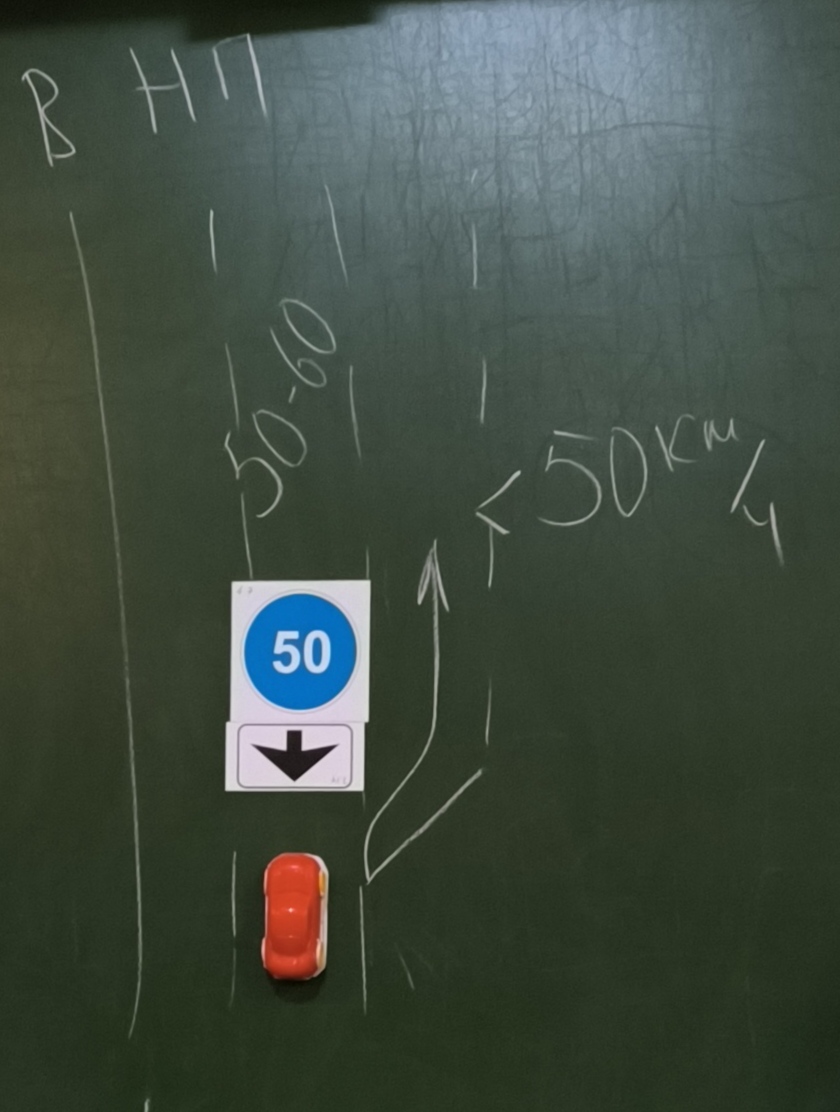 В НП
50-60
<50 км/ч
50